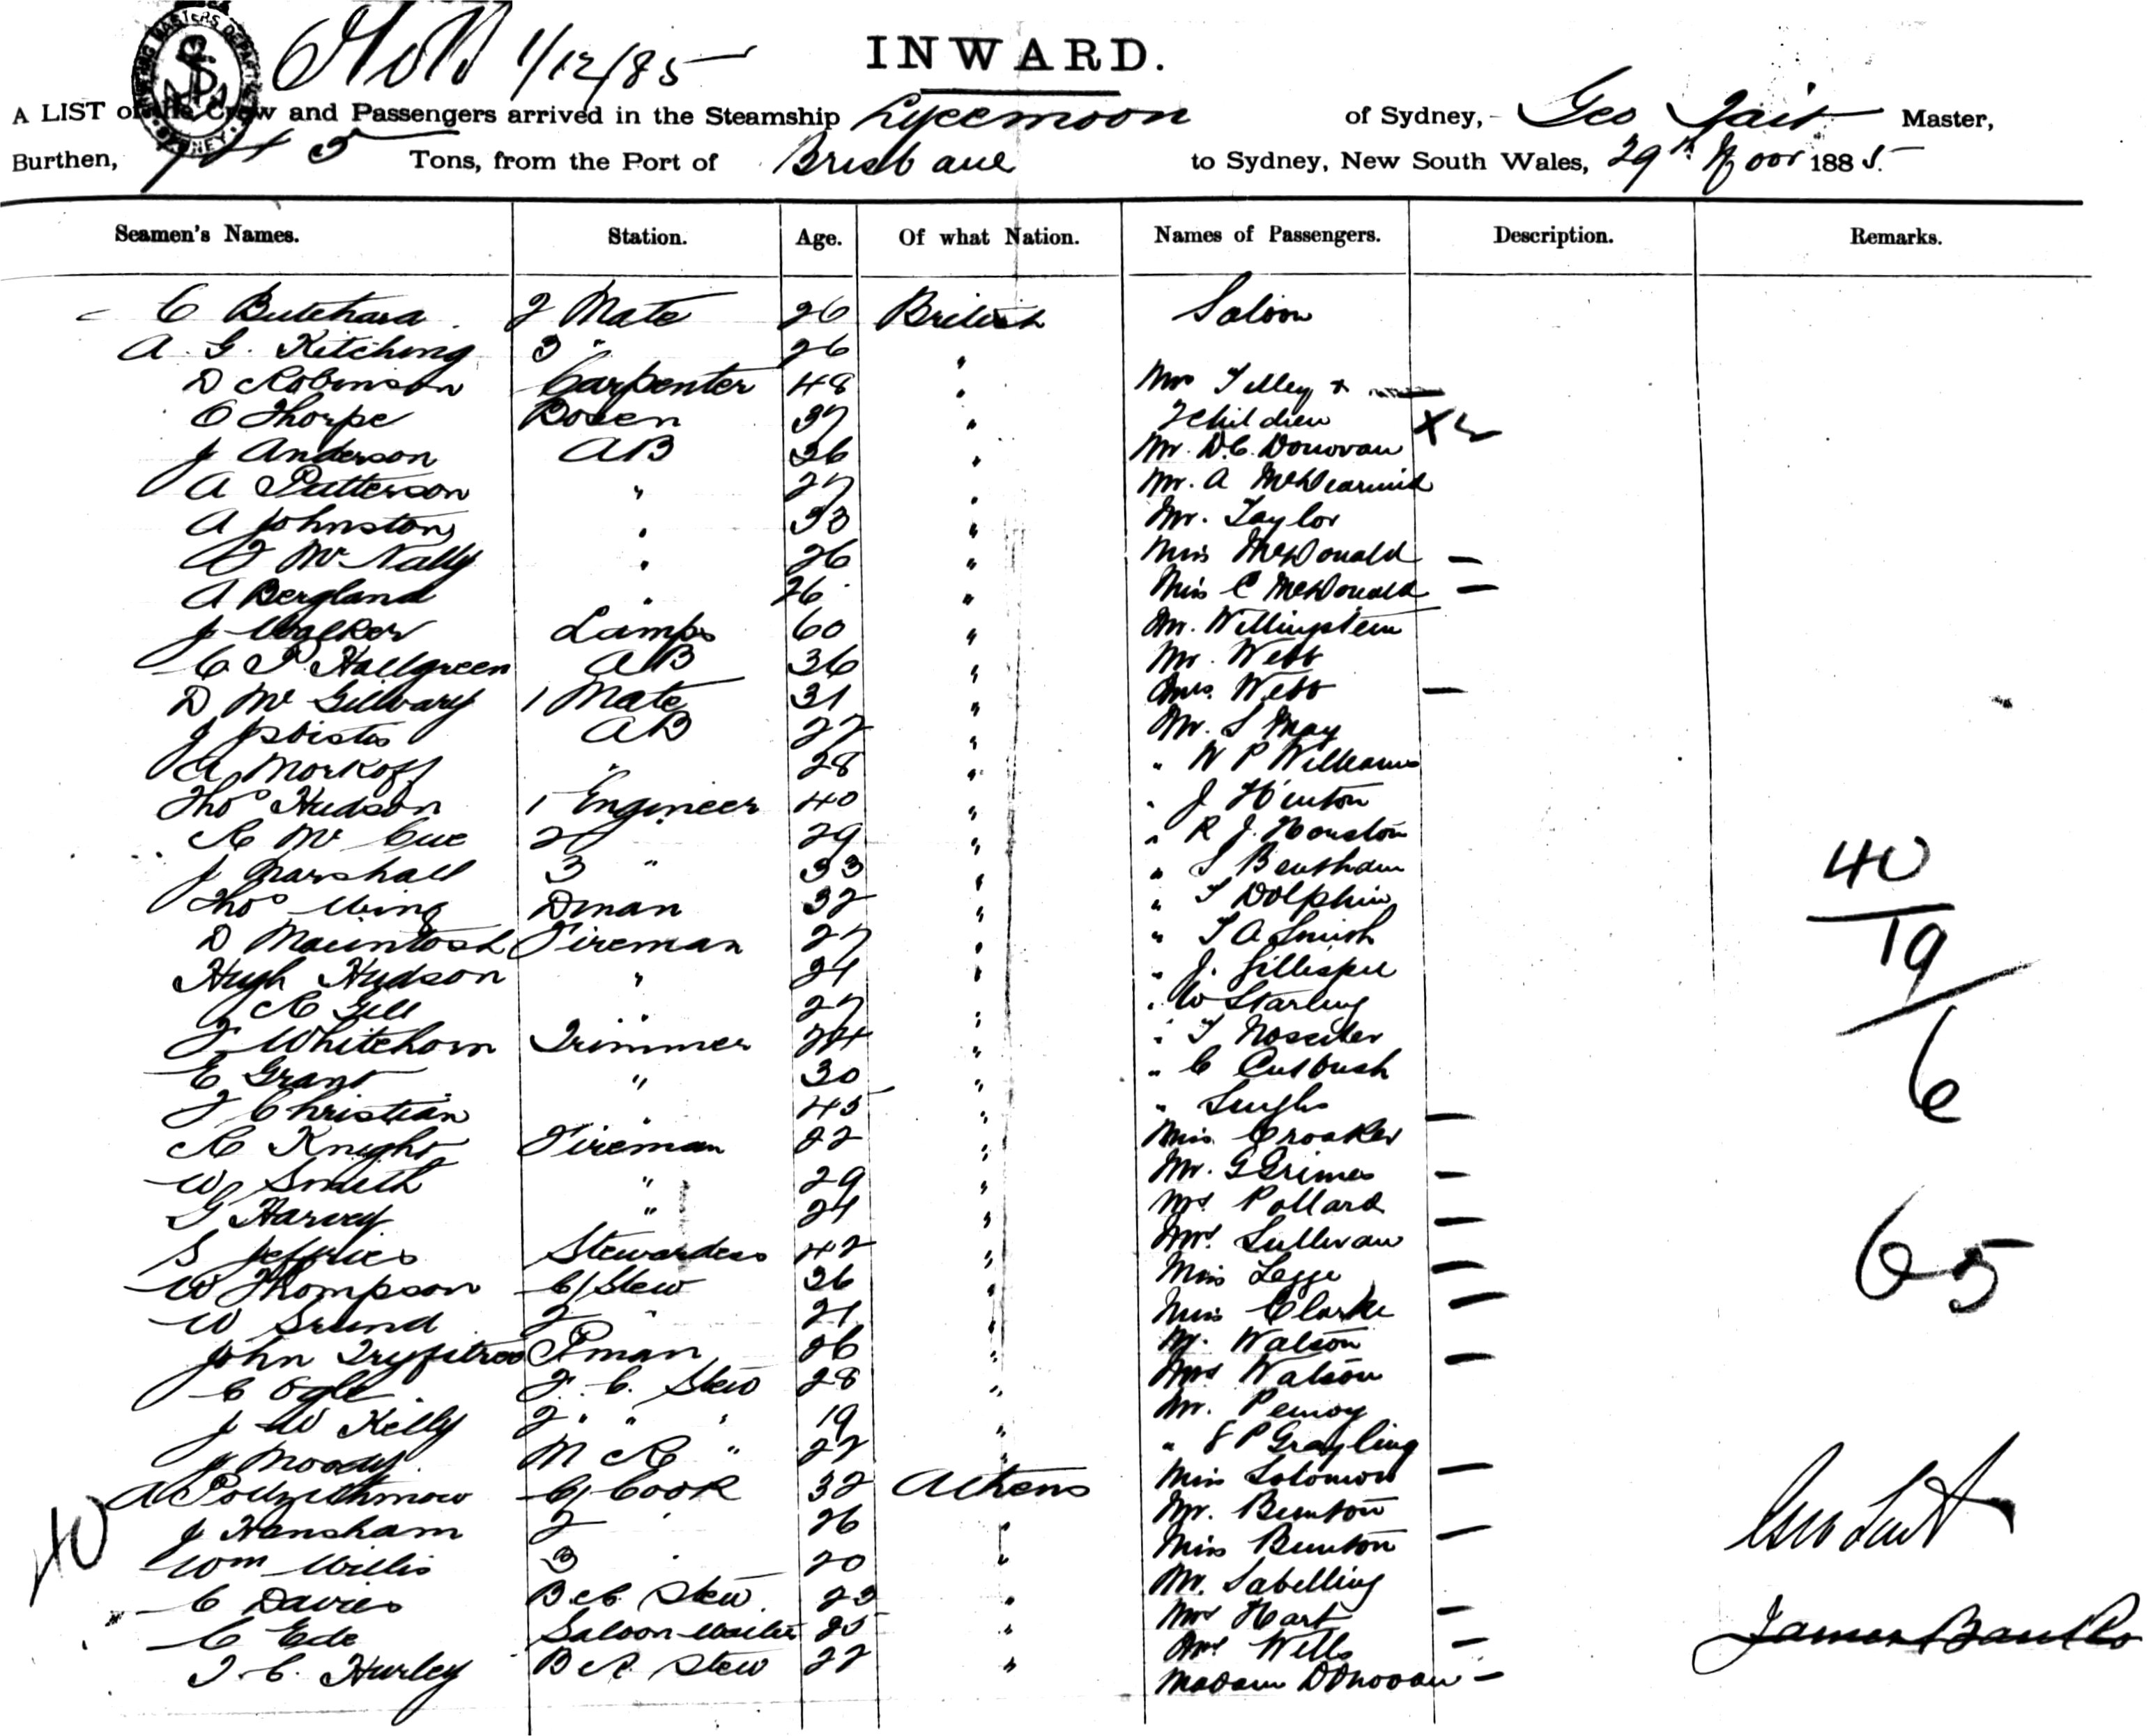 1/12/85
INWARD.
A LIST of the Crew and Passengers arrived in the Steamship Lyeemoon of Sydney, Geo Master,
Burthen, Tons, from the Port of Brisbane to Sydney, New South Wales, 29th 1885.
Seamen's Names. Station. Age. Of what Nation. Names of Passengers. Description. Remarks.
C Butchard 2 Mate 26 British Saloon
A. G. Kitching 3 " 26 "
D Robinson Carpenter 48 " Mrs Tilley &
C Thorpe Bosen 37 " 2 Children X
J Anderson AB 36 " Mr. D.C. Donovan
A Patterson " 27 " Mr. A McDearmid
A Johnston " 33 " Mr. Taylor
McNally " 26 " Miss McDonald —
A Bergland " 26 " Miss C McDonald —
J Walker Lamps 60 " Mr.
C P. Hallgreen AB 36 " Mr. Webb
D Mc Gilvary 1 Mate 31 " Mrs. Webb —
J AB 22 " Mr. S May
A Morkoff " 28 " " W P Williams
Thos Hudson 1 Engineer 40 " " J Hinton
R Mc Cue 2 " 29 " " R J. Houston
J Marshall 3 " 33 " " Bentham
Thos Wing Dman 32 " " T Dolphin
D Macintosh Fireman 27 " " T A Smith
Hugh Hudson " 21 " " J. Gillespie
R Gill " 27 " " W Starling
F Whitehorn Trimmer 24 " " T Nosciter
E Grant " 30 " " C Cutbush
J Christian " 45 " "
R Knight Fireman 22 " Miss Croaker —
W Smith " 29 " Mr. G Grimes
G Harvey " 24 " Mrs Pollard —
S Jeffries Stewardess 42 " Mrs. Sullivan —
W Thompson C/Stew 36 " Miss Legge —
W 2 " 21 " Miss Clarke —
John Pman 26 " Mr. Watson
C Ogle F. C. Stew 28 " Mrs Watson —
J W Kelly 2 " " " 19 " Mr.
J Moody M R " 22 " " S P Grayling
A C/ Cook 32 Athens Miss Solomon —
J Hansham 2 " 26 " Mr. Bunton
Wm Willis 3 " 20 " Miss Bunton —
C Davies B C Stew. 23 " Mr. Sabelling
C Ede Saloon Waiter 25 " Mrs Hart —
T. C. Hurley B C. Stew 22 " Mrs Wells —
Madam DDonovan —
40
19
6
65
40